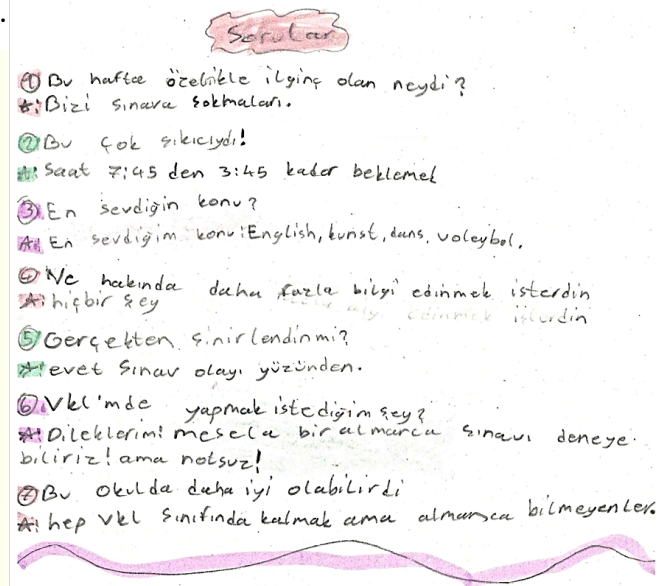 Sorular
① Bu hafta özelikle ilginç olan neydi?
A: Bizi sınava sokmaları.
② Bu çok sıkıcıydı!
A: Saat 7:45 den 3:45 kadar beklemek
③ En sevdiğin konu?
A: En sevdiğim konu: English, kunst, dans, voleybol.
④ Ne hakında daha fazla bilgi edinmek isterdin
A: hiçbir şey
⑤ Gerçekten sinirlendinmi?
A: evet Sınav olayı yüzünden.
⑥ Vkl'mde yapmak istediğim şey?
A: Dileklerim! mesela bir almanca sınavı deneye
biliriz! ama notsuz!
⑦ Bu okulda daha iyi olabilirdi
A: hep Vkl sınıfında kalmak ama almanca bilmeyenler.